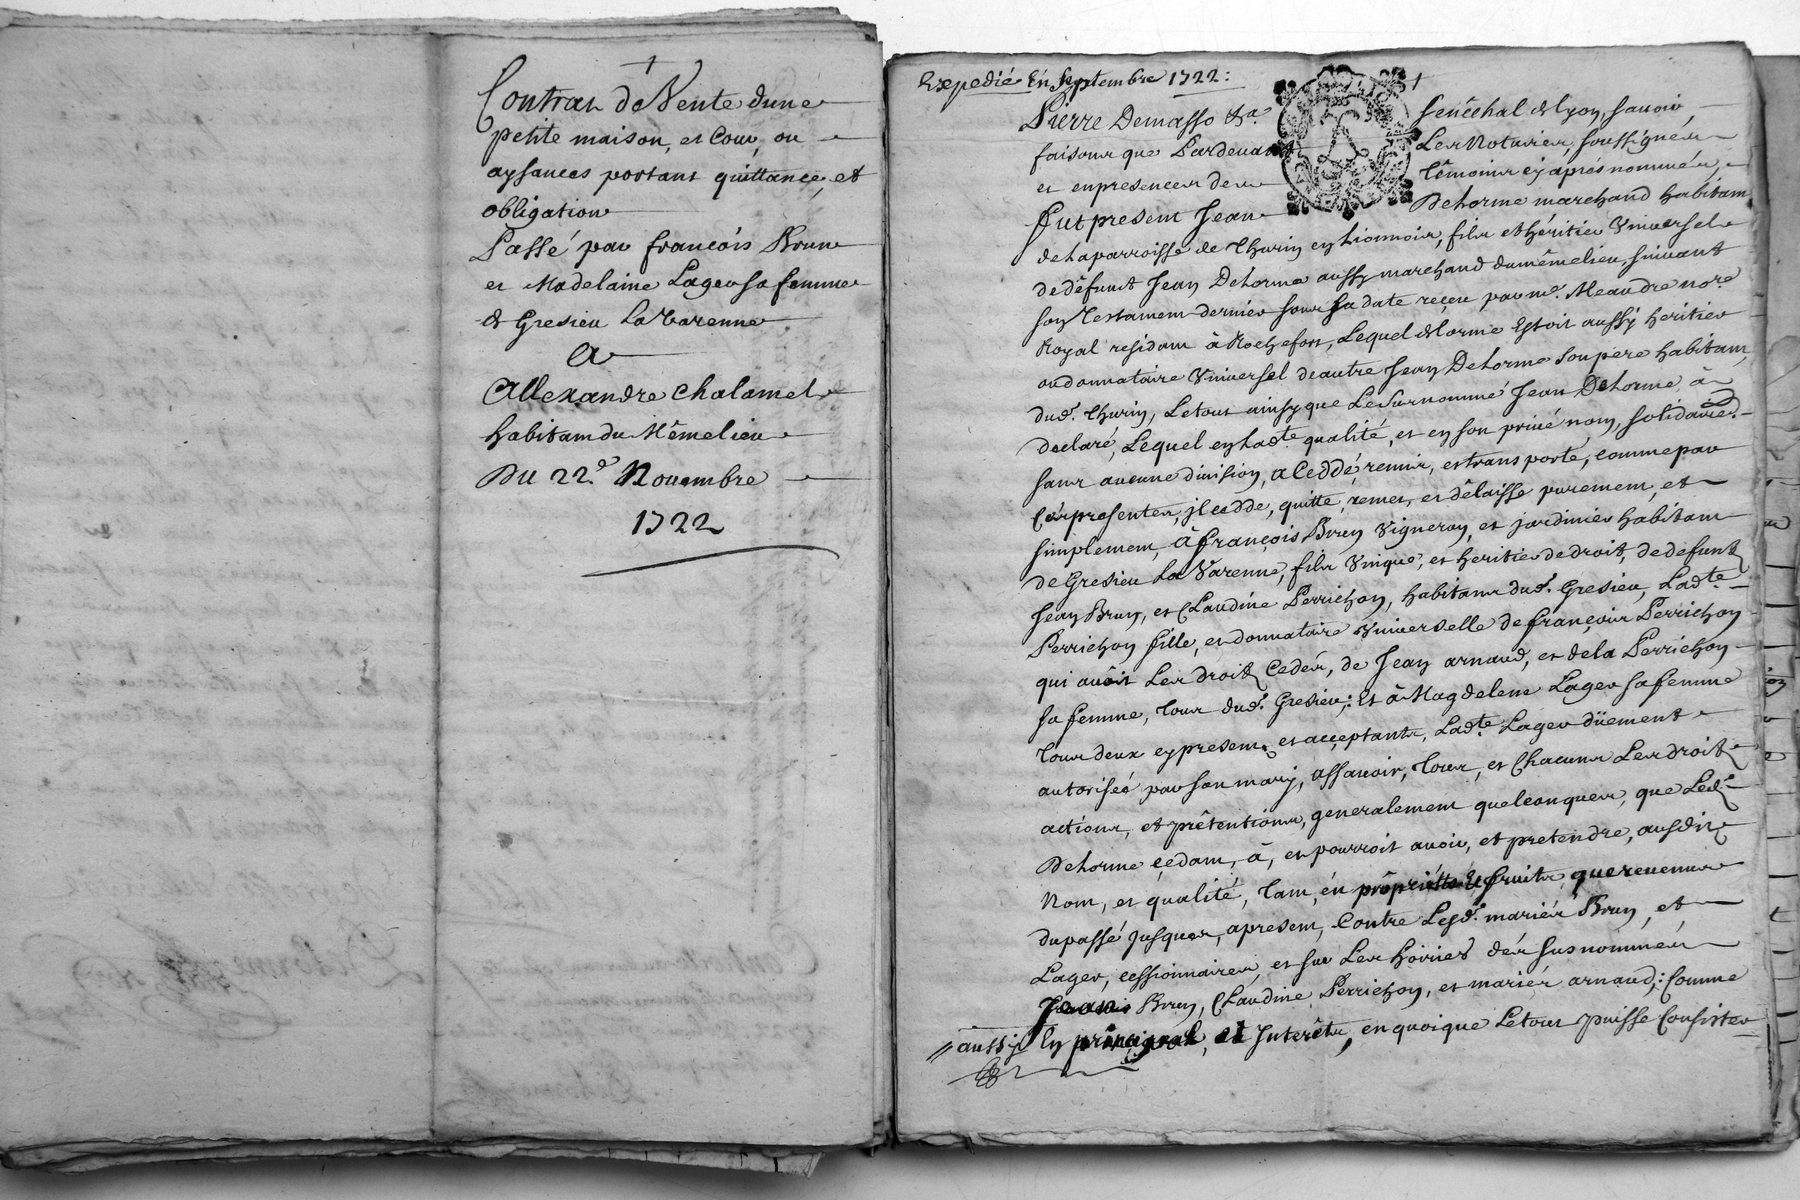 Contrat De Vente dune
petite maison, et Cour, ou
aysances portant quittance, et
obligation
Passé par françois Brun
et Madelaine Lager sa femme
de Gresieu La Varenne
A
Allexandre Chalamel
habitant du Mêmelieu
Du 22.e Nouembre
1722
Expedié En Septembre 1722:
Pierre Demasso &a. Senêchal de lyon, sauoir
faisons que Pardeuant Les Notaires, soussignés
et enpresences des Têmoins cy aprés nommés,
fut present Jean Delorme marchand habitant
delaparroisse de Thurin en Lionnois, fils et héritier Vniversel
de défunt Jean Delorme aussy marchand dumêmelieu, suiuant
son Testament dernier sous sa date reçeu par me. Meaudre nore.
Royal residant à Rochefort, Lequel delorme Estoit aussy heritier
oudonnataire Vniversel deautre Jean Delorme son pere habitant
dud. Thurin, Letout ainsyque Le surnommé Jean Delorme à
declaré, Lequel en lade. qualité, et en son priué nom, solidaire
sans aucune division, a Ceddé, remis, et transporté, comme par
Cesprésentes, il cedde, quitte, remet, et dêlaisse purement, et
simplement, à françois Brun Vigneron, et jardinier habitant
de Gresieu La Varenne, fils Vnique, et heritier de droit, de defunt
Jean Brun, et Claudine Perrichon, habitans dud. Gresieu, Ladte.
Perrichon fille, et donnataire Vniverselle de françois Perrichon
qui avoit Les droits Cedés, de Jean arnaud, et dela Perrichon
sa femme, Tous dud. Gresieu; Et à Magdelene Lager sa femme
Tous deux cy presents et acceptants, Ladte. Lager dûement
autorisée par son mary, assauoir, Tous, et Chacuns Les droits
actions, et prêtentions, generalement quelconques, que Led.
Delorme cedant, à, et pourroit auoir, et pretendre, ausdits
Nom, et qualité, Tant, en propriétté Et fruits, que reuenus
dupassé Jusques, apresent, Contre Lesd. mariés Brun, et
Lager, cessionnaires, et sur Les hoiries dés susnommés
Jean Brun, Claudine Perrichon, et mariés arnaud; Comme
aussy En prinçipal, et Interêts, en quoique Letout puisse Consister